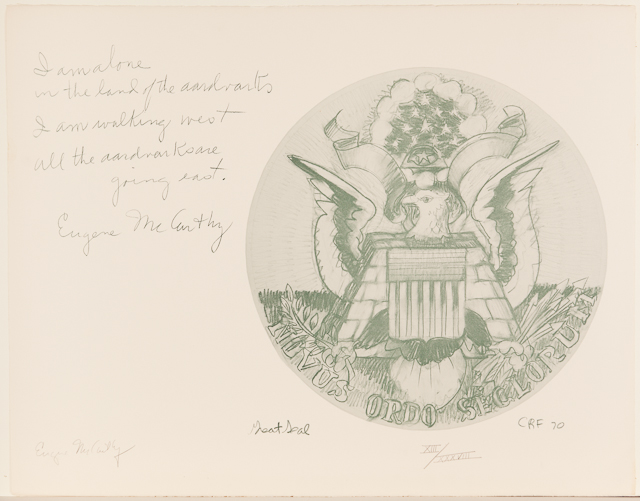 I am alone
in the land of the aardvarks
I am walking west
all the aardvarks are
going east.
Eugene McCarthy
NOVUS ORDO SECLORUM
Great Seal
CRF 70
Eugene McCarthy
XIII/XXXVIII